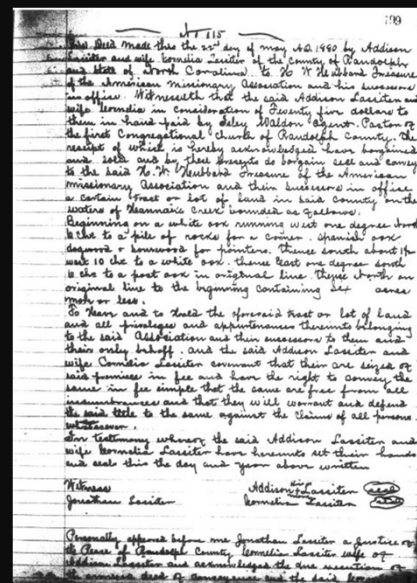 199
No 115
This Deed made this the 22nd day of May A.D. 1880 by Addison
Lassiter and wife Cornelia Lassiter of the County of Randolph
and State of North Carolina. to H W Hubbard Treasure
of the American Missionary Association and his successors
in office. Witnesseth that the said Addison Lassiter and
wife Cornelia in consideration of Twenty five dollars to
them in hand paid by Islay Waldon Agent. Pastor of
the first Congregational Church of Randolph County. The
receipt of which is hereby acknowledged have bargained
and sold and by these presents do bargain sell and convey
to the said H. W. Hubbard Treasure of the American
missionary Association and their successors in office
a certain tract or lot of land in said County on the
waters of Hannah's Creek bounded as follows.
Beginning on a white oak running west one degree North
6 chs to a pile of rocks for a corner. Spanish oak
dogwood & sourwood for pointers, thence South about 1°
west 10 chs to a white oak. thence East one degree South
6 chs to a post oak in original line. Thence North on
original line to the beginning containing acres
more or less.
To Have and to Hold the aforesaid tract or lot of land
and all privileges and appurtenances thereunto belonging
to the said Association and their successors to them and
their only behoff. and the said Addison Lassiter and
wife Cornelia Lassiter covenant that they are seized of
said premises in fee and have the right to convey the
same in fee simple that the same are free from all
incumbrances and that they will warrant and defend
the said title to the same against the claims of all persons
whatsoever.
In testimony whereof the said Addison Lassiter and
wife Cornelia Lassiter have hereunto set their hands
and seal this the day and year above written
Witness Addison his Lassiter seal
Jonathan Lassiter Cornelia Lassiter seal
Personally appeared before me Jonathan Lassiter a Justice of
the Peace of Randolph County Cornelia Lassiter wife of
Addison Lassiter and acknowledged the due execution of
the annexed deed of conveyance and the said